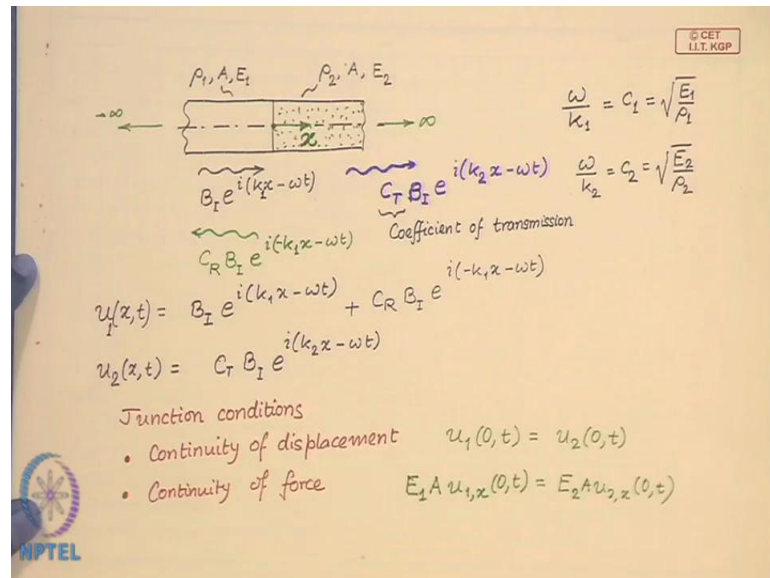 © CET
I.I.T. KGP
ρ₁, A, E₁
ρ₂, A, E₂
-∞
x
∞
ω/k₁ = c₁ = √(E₁/ρ₁)
ω/k₂ = c₂ = √(E₂/ρ₂)
B_I e^{i(k₁x-ωt)}
C_T B_I e^{i(k₂x-ωt)}
Coefficient of transmission
C_R B_I e^{i(-k₁x-ωt)}
u₁(x,t) = B_I e^{i(k₁x-ωt)} + C_R B_I e^{i(-k₁x-ωt)}
u₂(x,t) = C_T B_I e^{i(k₂x-ωt)}
Junction conditions
• Continuity of displacement u₁(0,t) = u₂(0,t)
• Continuity of force E₁A u₁,ₓ(0,t) = E₂A u₂,ₓ(0,t)
NPTEL